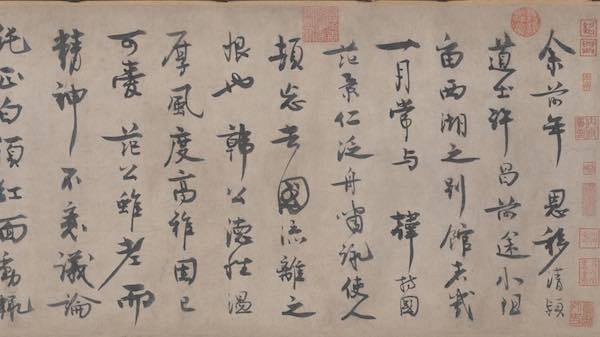 余前年 恩移清潁
道出許昌前途小阻
留西湖之別館者幾
一月常與 韓持國
范景仁泛舟嘯詠使人
頓忘去國流離之
恨也韓公德性溫
厚風度高雅固已
可愛范公雖老而
精神不衰議論
純正白須紅面動輒